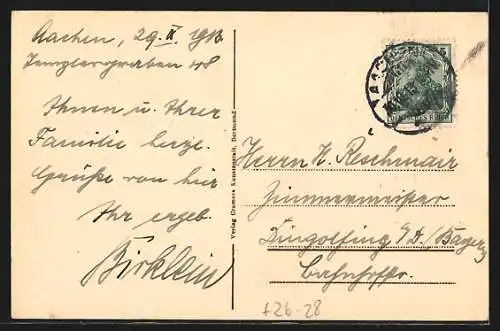 Aachen, 29. X. 1913
Templergraben 48
Ihnen u. Ihrer
Familie herzl.
Grüße von hier
Ihr ergeb.
Birklein
Verlag Cramers Kunstanstalt, Dortmund
5
DEUTSCHES REICH
Herrn H. Reschmair
Zimmermeister
Dingolfing a/D. (Bayern)
Bahnhofstr.
+26-28